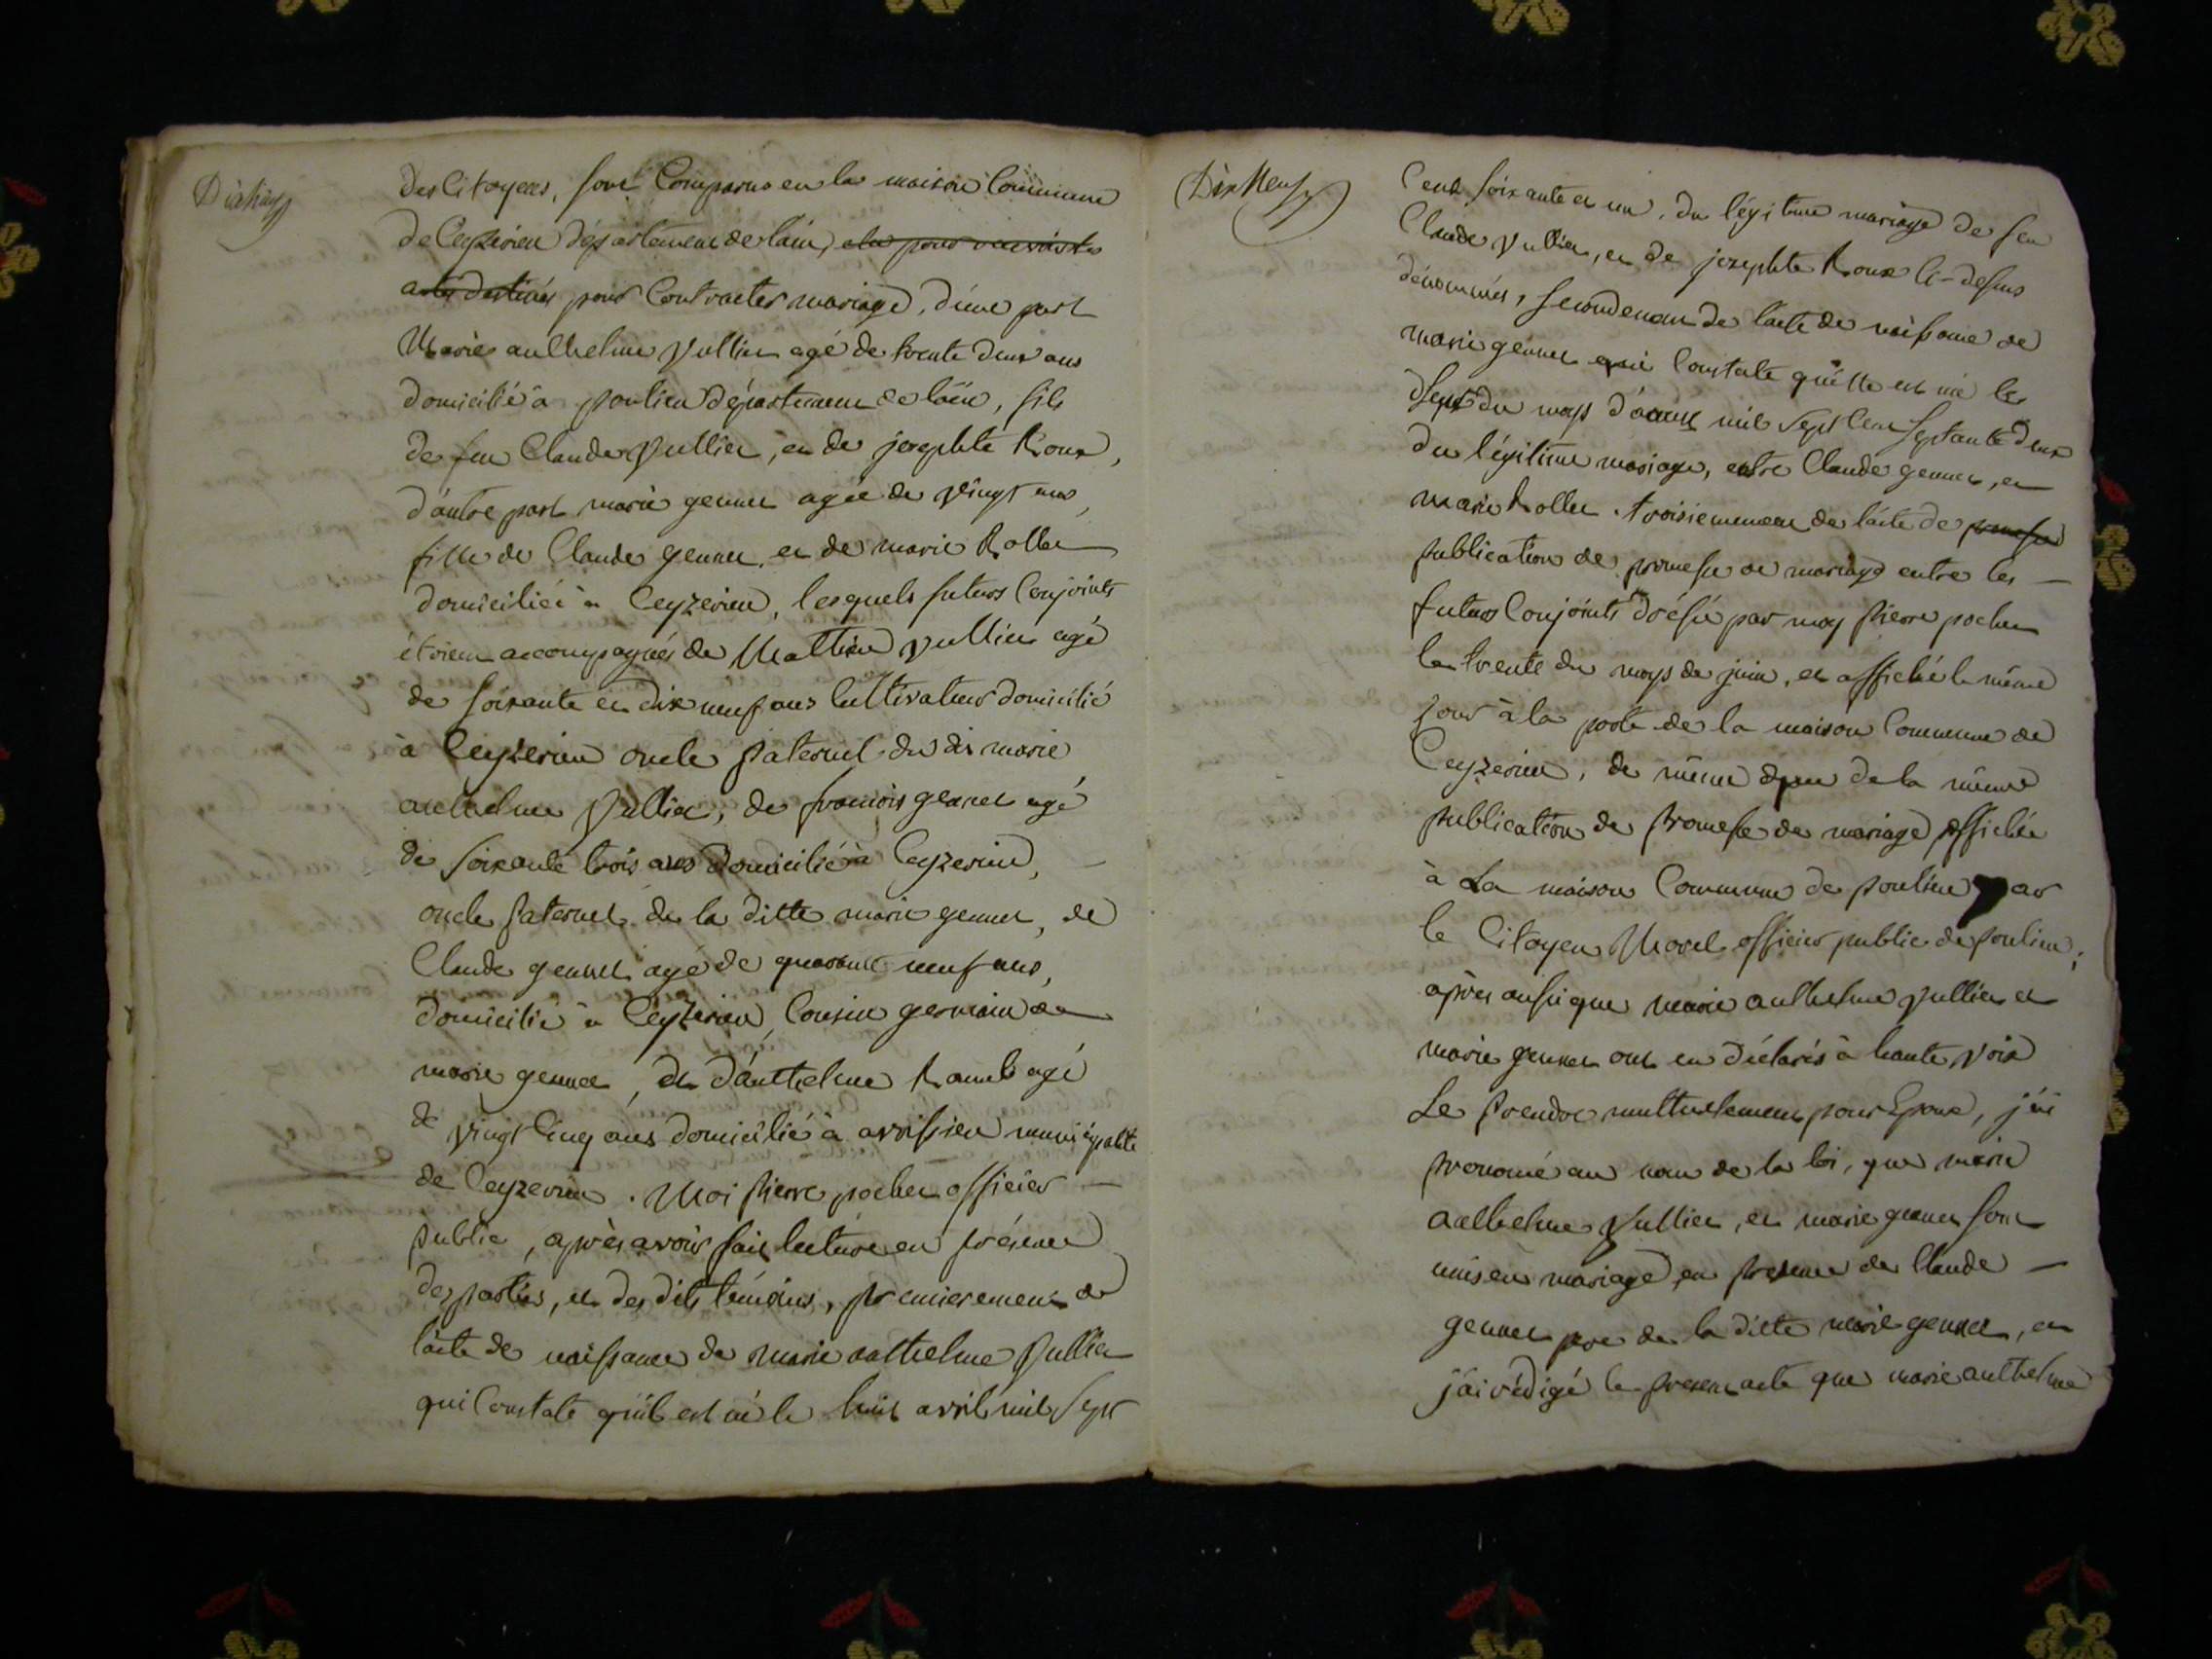 Dixhuit
des Citoyens, sont Comparus en la maison Commune
de Ceyzerieu département de lain,
actes destinés pour Contracter mariage, d'une part
Marie anthelme Vullier agé de trente deux ans
domicilié à poulieu département de lain, fils
de feu Claude Vullier, et de josephte Roux,
d'autre part marie gennet agée de vingt ans,
fille de Claude gennet, et de marie Rollet
domiciliée à Ceyzerieu, lesquels futurs Conjoints
étoient accompagnés de Mathieu Vullier agé
de soixante et dix neuf ans Cultivateur domicilié
à Ceyzerieu oncle paternel du dit marie
anthelme Vullier, de francois gennet agé
de soixante trois ans domicilié à Ceyzerieu,
oncle paternel de la ditte marie gennet, de
Claude gennet agé de quarante neuf ans,
domicilié à Ceyzerieu, Cousin germain de
marie gennet, et d'anthelme agé
de vingt Cinq ans domicilié à avrissieu municipalité
de Ceyzerieu. Moi pierre pochet officier
public, après avoir fait lecture en présence
des parties, et des dits témoins, premierement de
l'acte de naissance de marie anthelme Vullier
qui Constate qu'il est né le huit avril mil sept
Dix Neuf
Cent soixante et un, du légitime mariage de feu
Claude Vullier, et de josephte Roux Ci-dessus
dénommés, secondement de l'acte de naissance de
marie gennet qui Constate qu'elle est née le
du moys d'aoust mil sept Cent septante deux
du légitime mariage, entre Claude gennet, et
marie Rollet. troisiemement de l'acte de promesse
publication de promesse de mariage entre les
futurs Conjoints dréssé par moy pierre pochet
le trente du moys de juin, et affiché le même
jour à la porte de la maison Commune de
Ceyzerieu, de même que de la même
publication de promesse de mariage affichée
à La maison Commune de poulieu par
le Citoyen Morel officier public de poulieu;
après aussi que marie anthelme Vullier et
marie gennet ont eu déclarés à haute voix
Se prendre mutuellement pour Epoux, j'ai
prononcé au nom de la loi, que marie
anthelme Vullier, et marie gennet sont
unis en mariage, en presence de Claude
gennet pere de la ditte marie gennet, et
j'ai rédigé le present acte que marie anthelme